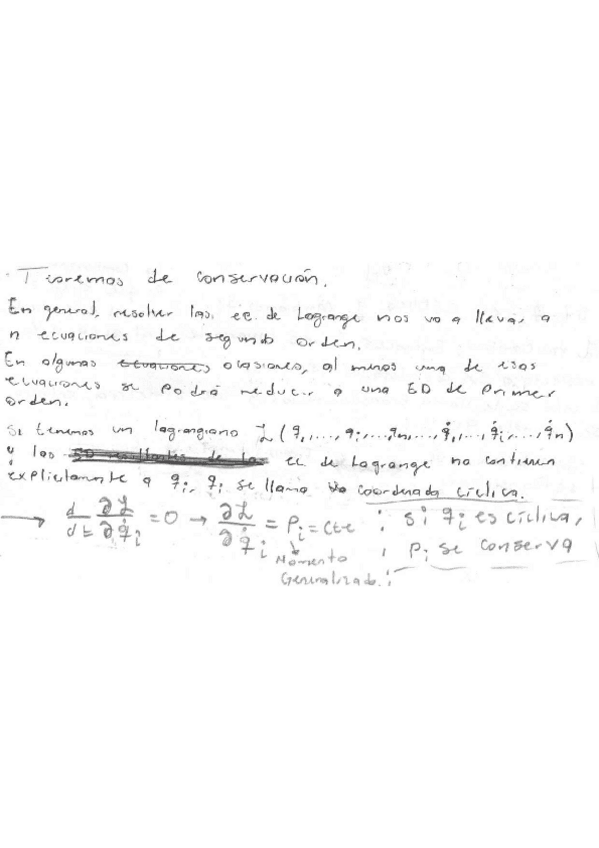 · Teoremas de conservación.
En general, resolver las ec. de Lagrange nos va a llevar a
n ecuaciones de segundo orden.
En algunas ecuaciones ocasiones, al menos una de esas
ecuaciones se podrá reducir a una ED de primer
orden.
Si tenemos un lagrangiano ℒ (q₁,...., qᵢ,...,qₙ, ..., q̇₁,..., q̇ᵢ,..., q̇ₙ)
y las ec de Lagrange no contienen
explícitamente a qᵢ, qᵢ se llama coordenada cíclica.
→ d/dt ∂ℒ/∂q̇ᵢ = 0 → ∂ℒ/∂q̇ᵢ = Pᵢ = cte
Momento
Generalizado.
si qᵢ es cíclica,
Pᵢ se conserva